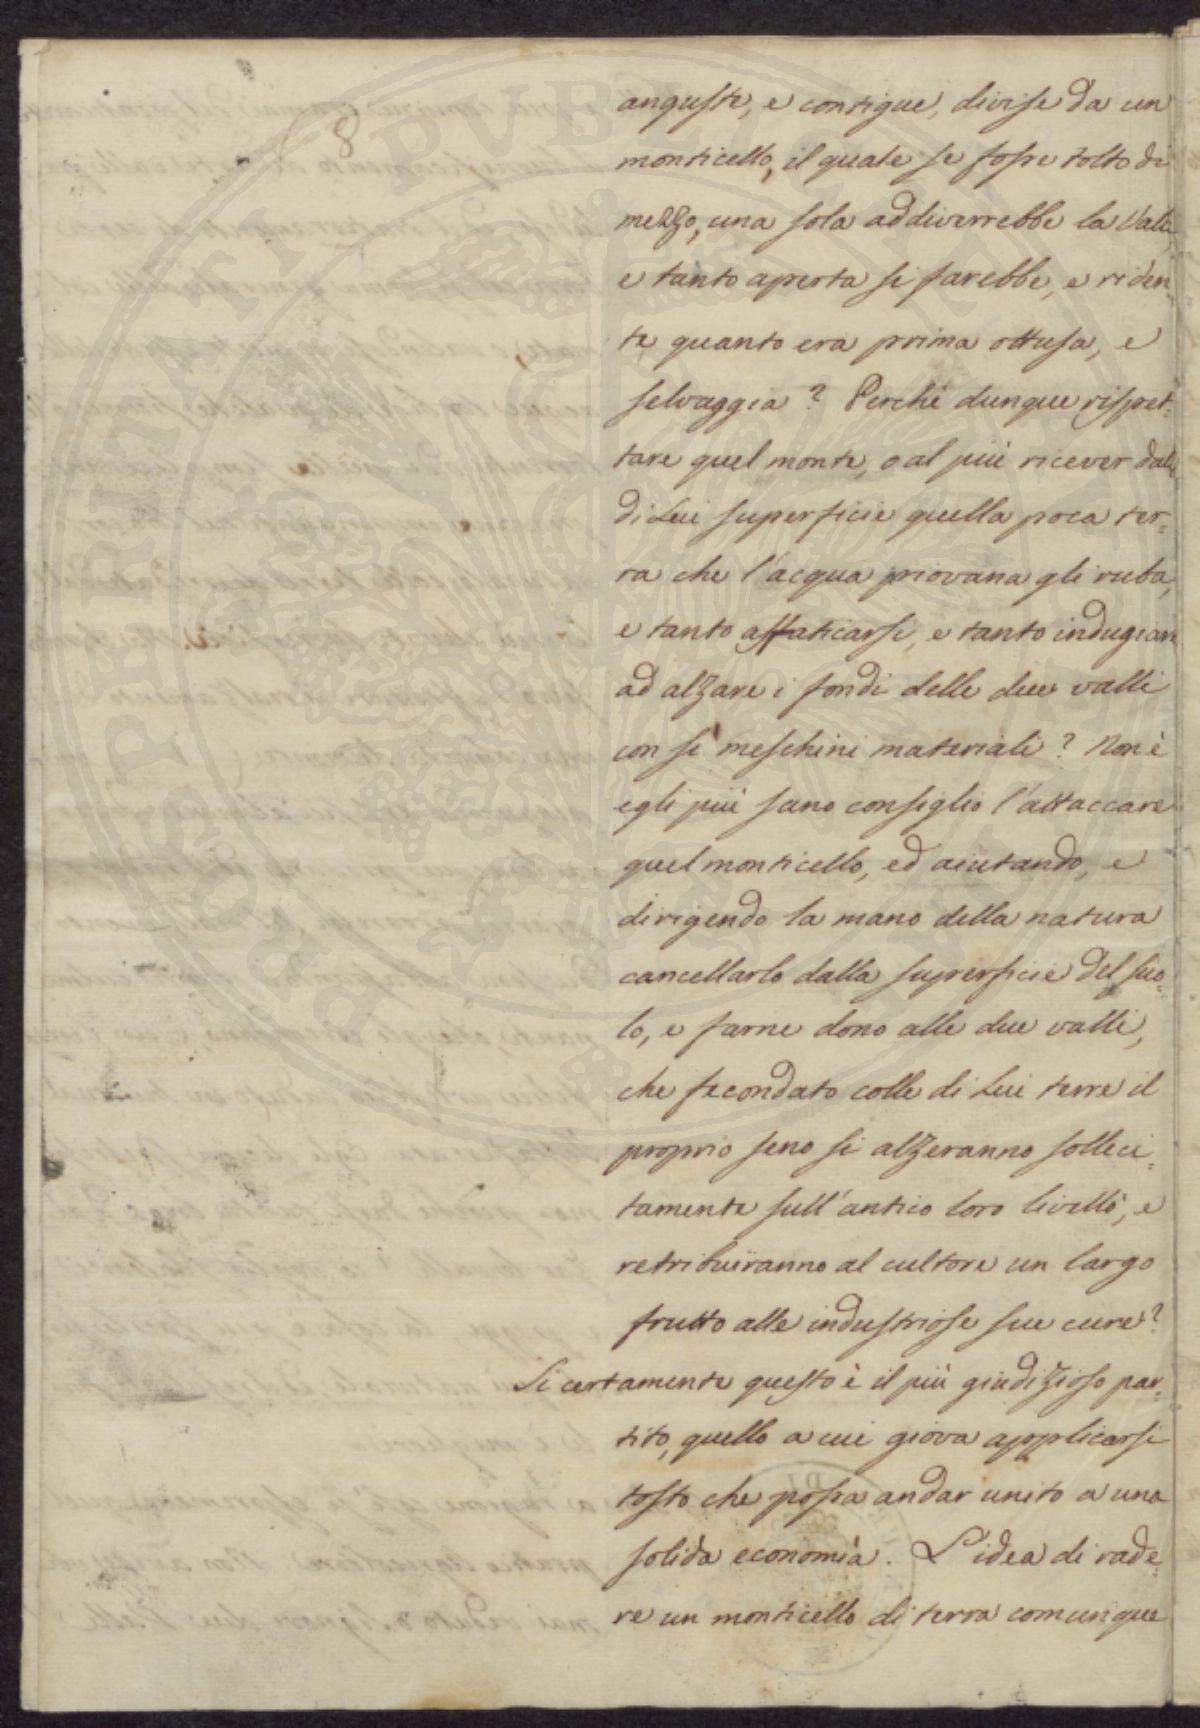 8
anguste, e contigue, divise da un
monticello, il quale se fosse tolto di
mezzo, una sola addiverrebbe la Valle,
e tanto aperta si farebbe, e riden,
te quanto era prima ottusa, e
selvaggia? Perchè dunque rispet=
tare quel monte, o al più ricever dalla
di Lui superficie quella poca ter=
ra che l'acqua piovana gli ruba,
e tanto affaticarsi, e tanto indugiare
ad alzare i fondi delle due valli
con sì meschini materiali? Non è
egli più sano consiglio l'attaccare
quel monticello, ed aiutando, e
dirigendo la mano della natura
cancellarlo dalla superficie del suo=
lo, e farne dono alle due valli,
che fecondato colle di Lui terre il
proprio seno si alzeranno solleci=
tamente sull'antico loro livello, e
retribuiranno al cultore un largo
frutto alle industriose sue cure?
Si certamente questo è il più giudizioso par=
tito, quello a cui giova applicarsi
tosto che possa andar unito a una
solida economia. L'idea di rade=
re un monticello di terra comunque